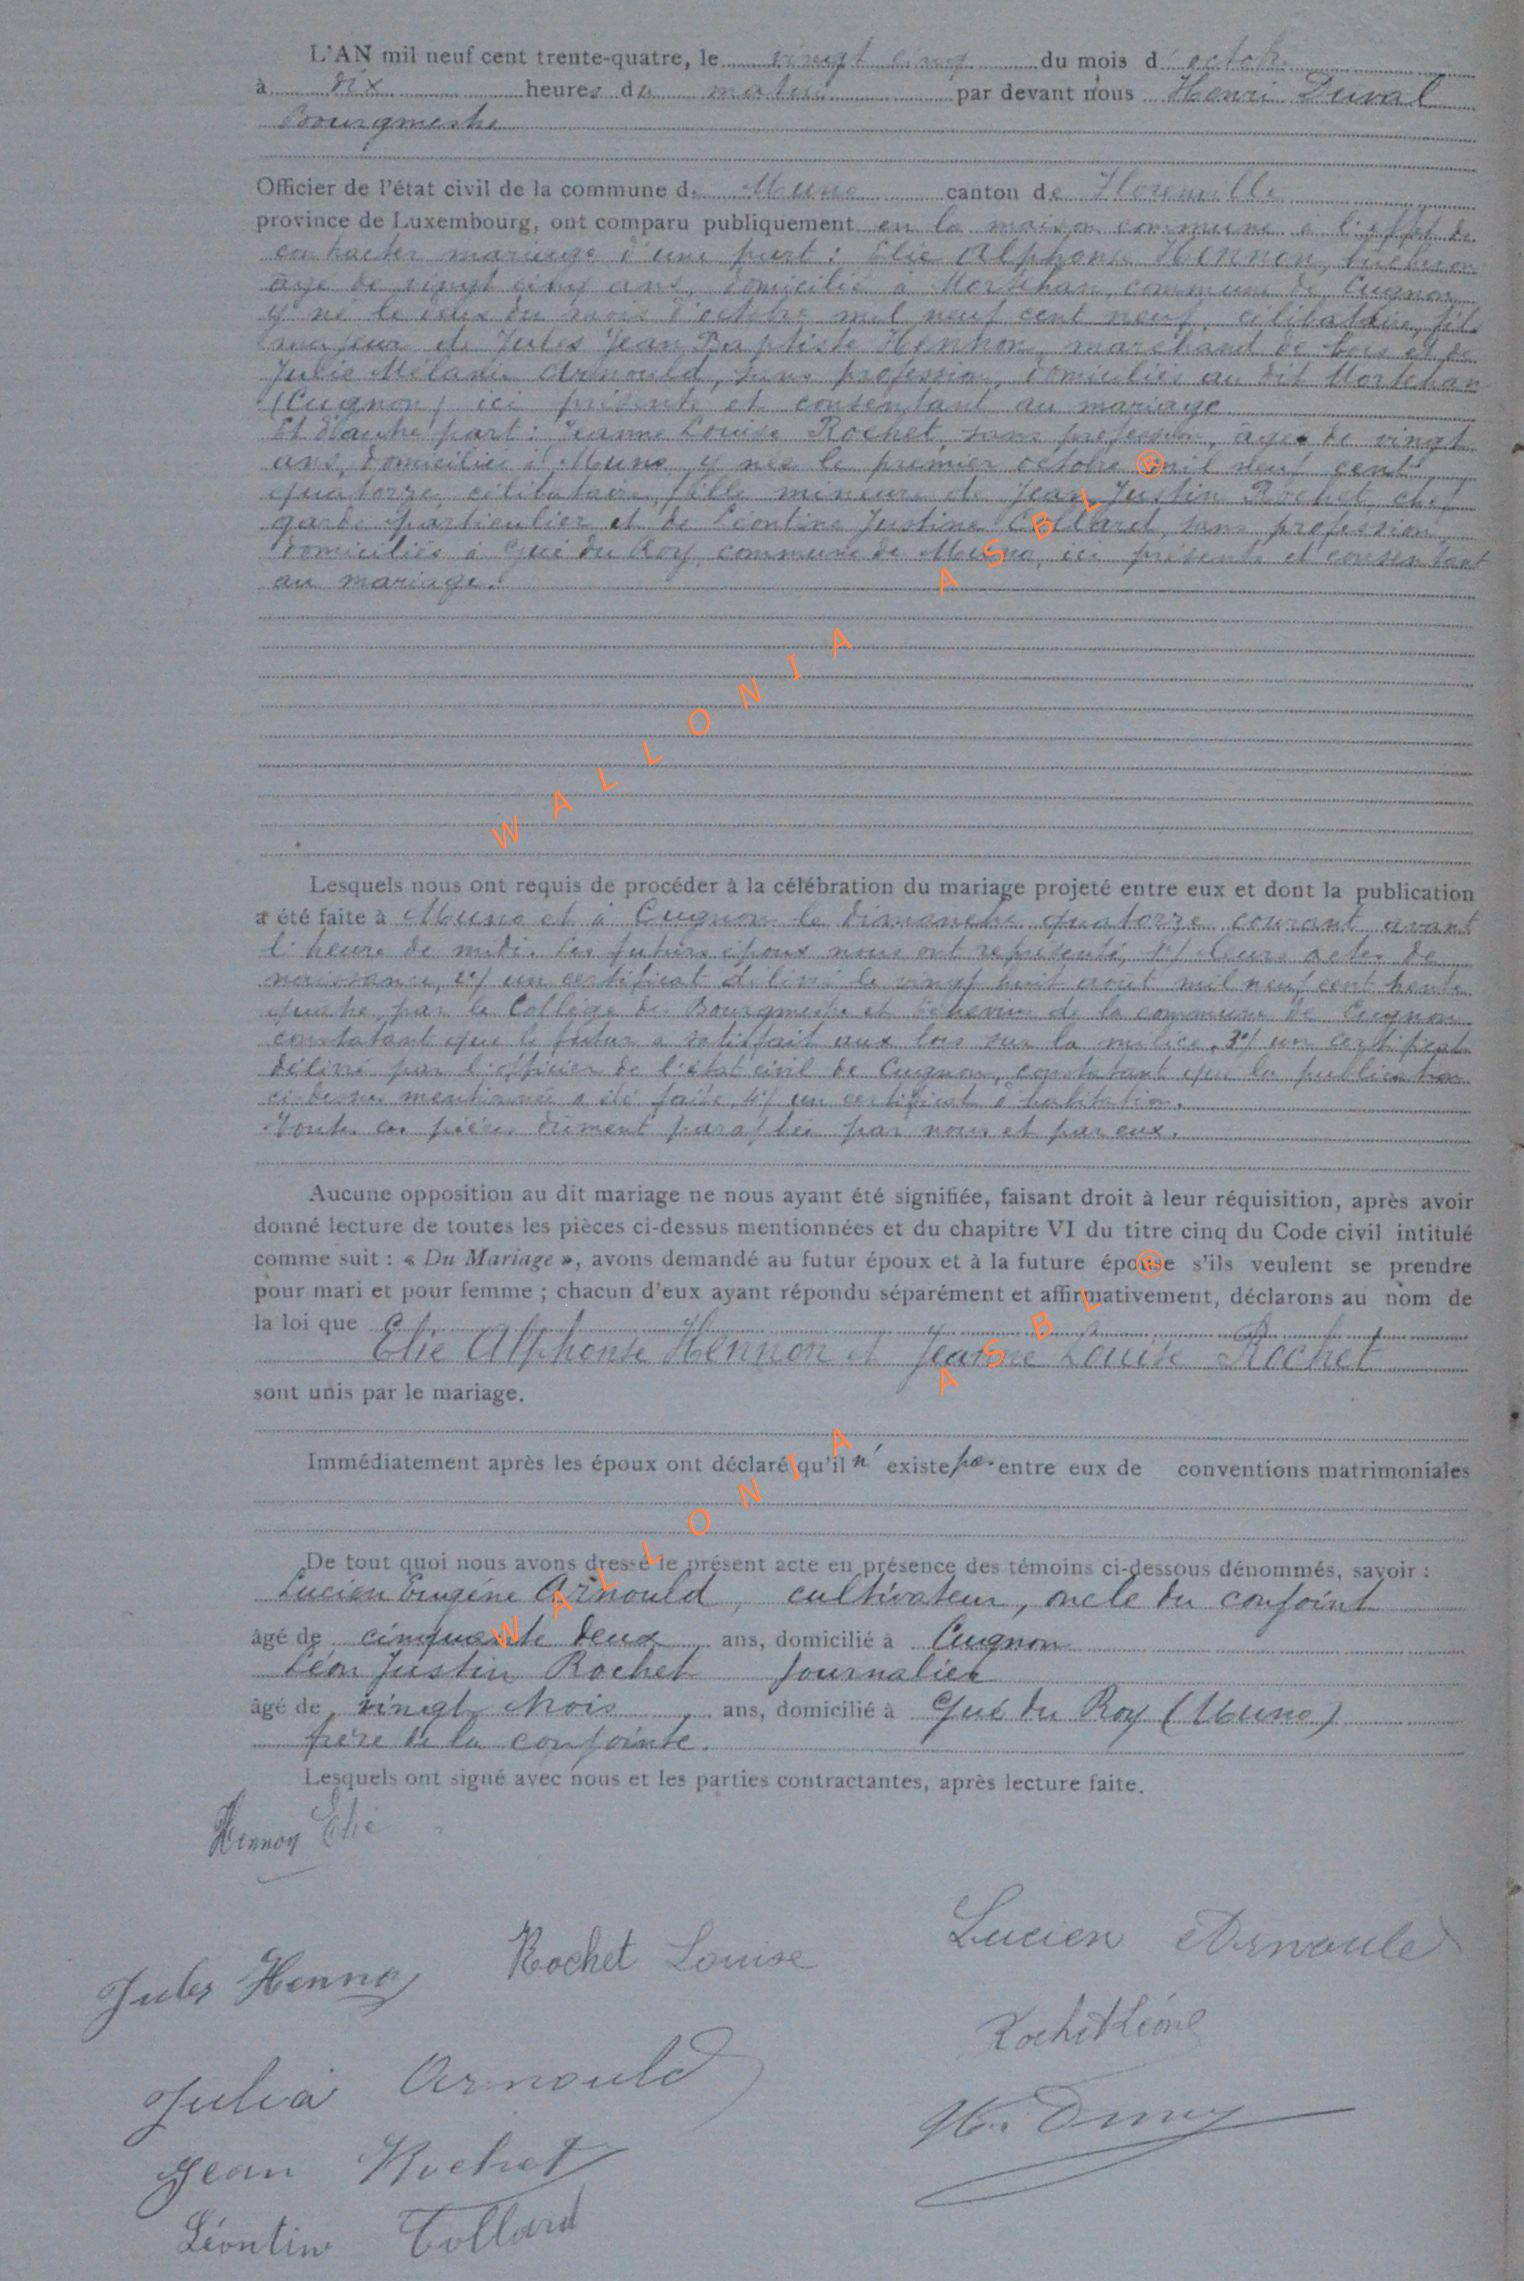 L'AN mil neuf cent trente-quatre, le vingt cinq du mois d'octobre
à dix heures du matin par devant nous Henri Duval
Bourgmestre
Officier de l'état civil de la commune de Muno canton de Florenville
province de Luxembourg, ont comparu publiquement en la maison commune à l'effet de
contracter mariage d'une part : Elie Alphonse Hennon, bûcheron
âgé de vingt cinq ans, domicilié à Mortehan, commune de Cugnon
y né le deux du mois d'octobre mil neuf cent neuf, célibataire, fils
majeur de Jules Jean Baptiste Hennon, marchand de bois et de
Julie Mélanie Arnould, sans profession, domiciliés au dit Mortehan
(Cugnon) ici présents et consentant au mariage
Et d'autre part : Jeanne Louise Rochet, sans profession, âgée de vingt
ans, domiciliée à Muno, y née le premier octobre mil neuf cent
quatorze, célibataire, fille mineure de Jean Justin Rochet, chef
garde particulier et de Léontine Justine Collard, sans profession
domiciliés à Gué du Roy, commune de Muno, ici présents et consentant
au mariage.
WALLONIA ASBL ®
Lesquels nous ont requis de procéder à la célébration du mariage projeté entre eux et dont la publication
a été faite à Muno et à Cugnon le dimanche quatorze courant avant
l'heure de midi. Les futurs époux nous ont représenté, 1°/ leurs actes de
naissance, 2°/ un certificat délivré le vingt huit août mil neuf cent trente
quatre, par le Collège des Bourgmestre et Echevins de la commune de Cugnon
constatant que le futur a satisfait aux lois sur la milice, 3°/ un certificat
délivré par l'officier de l'état civil de Cugnon, constatant que la publication
ci-dessus mentionnée a été faite, 4°/ un certificat d'habitation.
Toutes ces pièces dûment paraphées par nous et par eux.
Aucune opposition au dit mariage ne nous ayant été signifiée, faisant droit à leur réquisition, après avoir
donné lecture de toutes les pièces ci-dessus mentionnées et du chapitre VI du titre cinq du Code civil intitulé
comme suit : « Du Mariage », avons demandé au futur époux et à la future épouse s'ils veulent se prendre
pour mari et pour femme ; chacun d'eux ayant répondu séparément et affirmativement, déclarons au nom de
la loi que
Elie Alphonse Hennon et Jeanne Louise Rochet
sont unis par le mariage.
Immédiatement après les époux ont déclaré qu'il n'existe pas entre eux de conventions matrimoniales
De tout quoi nous avons dressé le présent acte en présence des témoins ci-dessous dénommés, savoir :
Lucien Eugène Arnould, cultivateur, oncle du conjoint
âgé de cinquante deux ans, domicilié à Cugnon
Léon Justin Rochet journalier
âgé de vingt trois ans, domicilié à Gué du Roy (Muno)
frère de la conjointe.
Lesquels ont signé avec nous et les parties contractantes, après lecture faite.
WALLONIA ASBL ®
Hennon Elie
Lucien Arnould
Rochet Louise
Jules Hennon
Rochet Léon
Julia Arnould
Jean Rochet
Léontine Collard